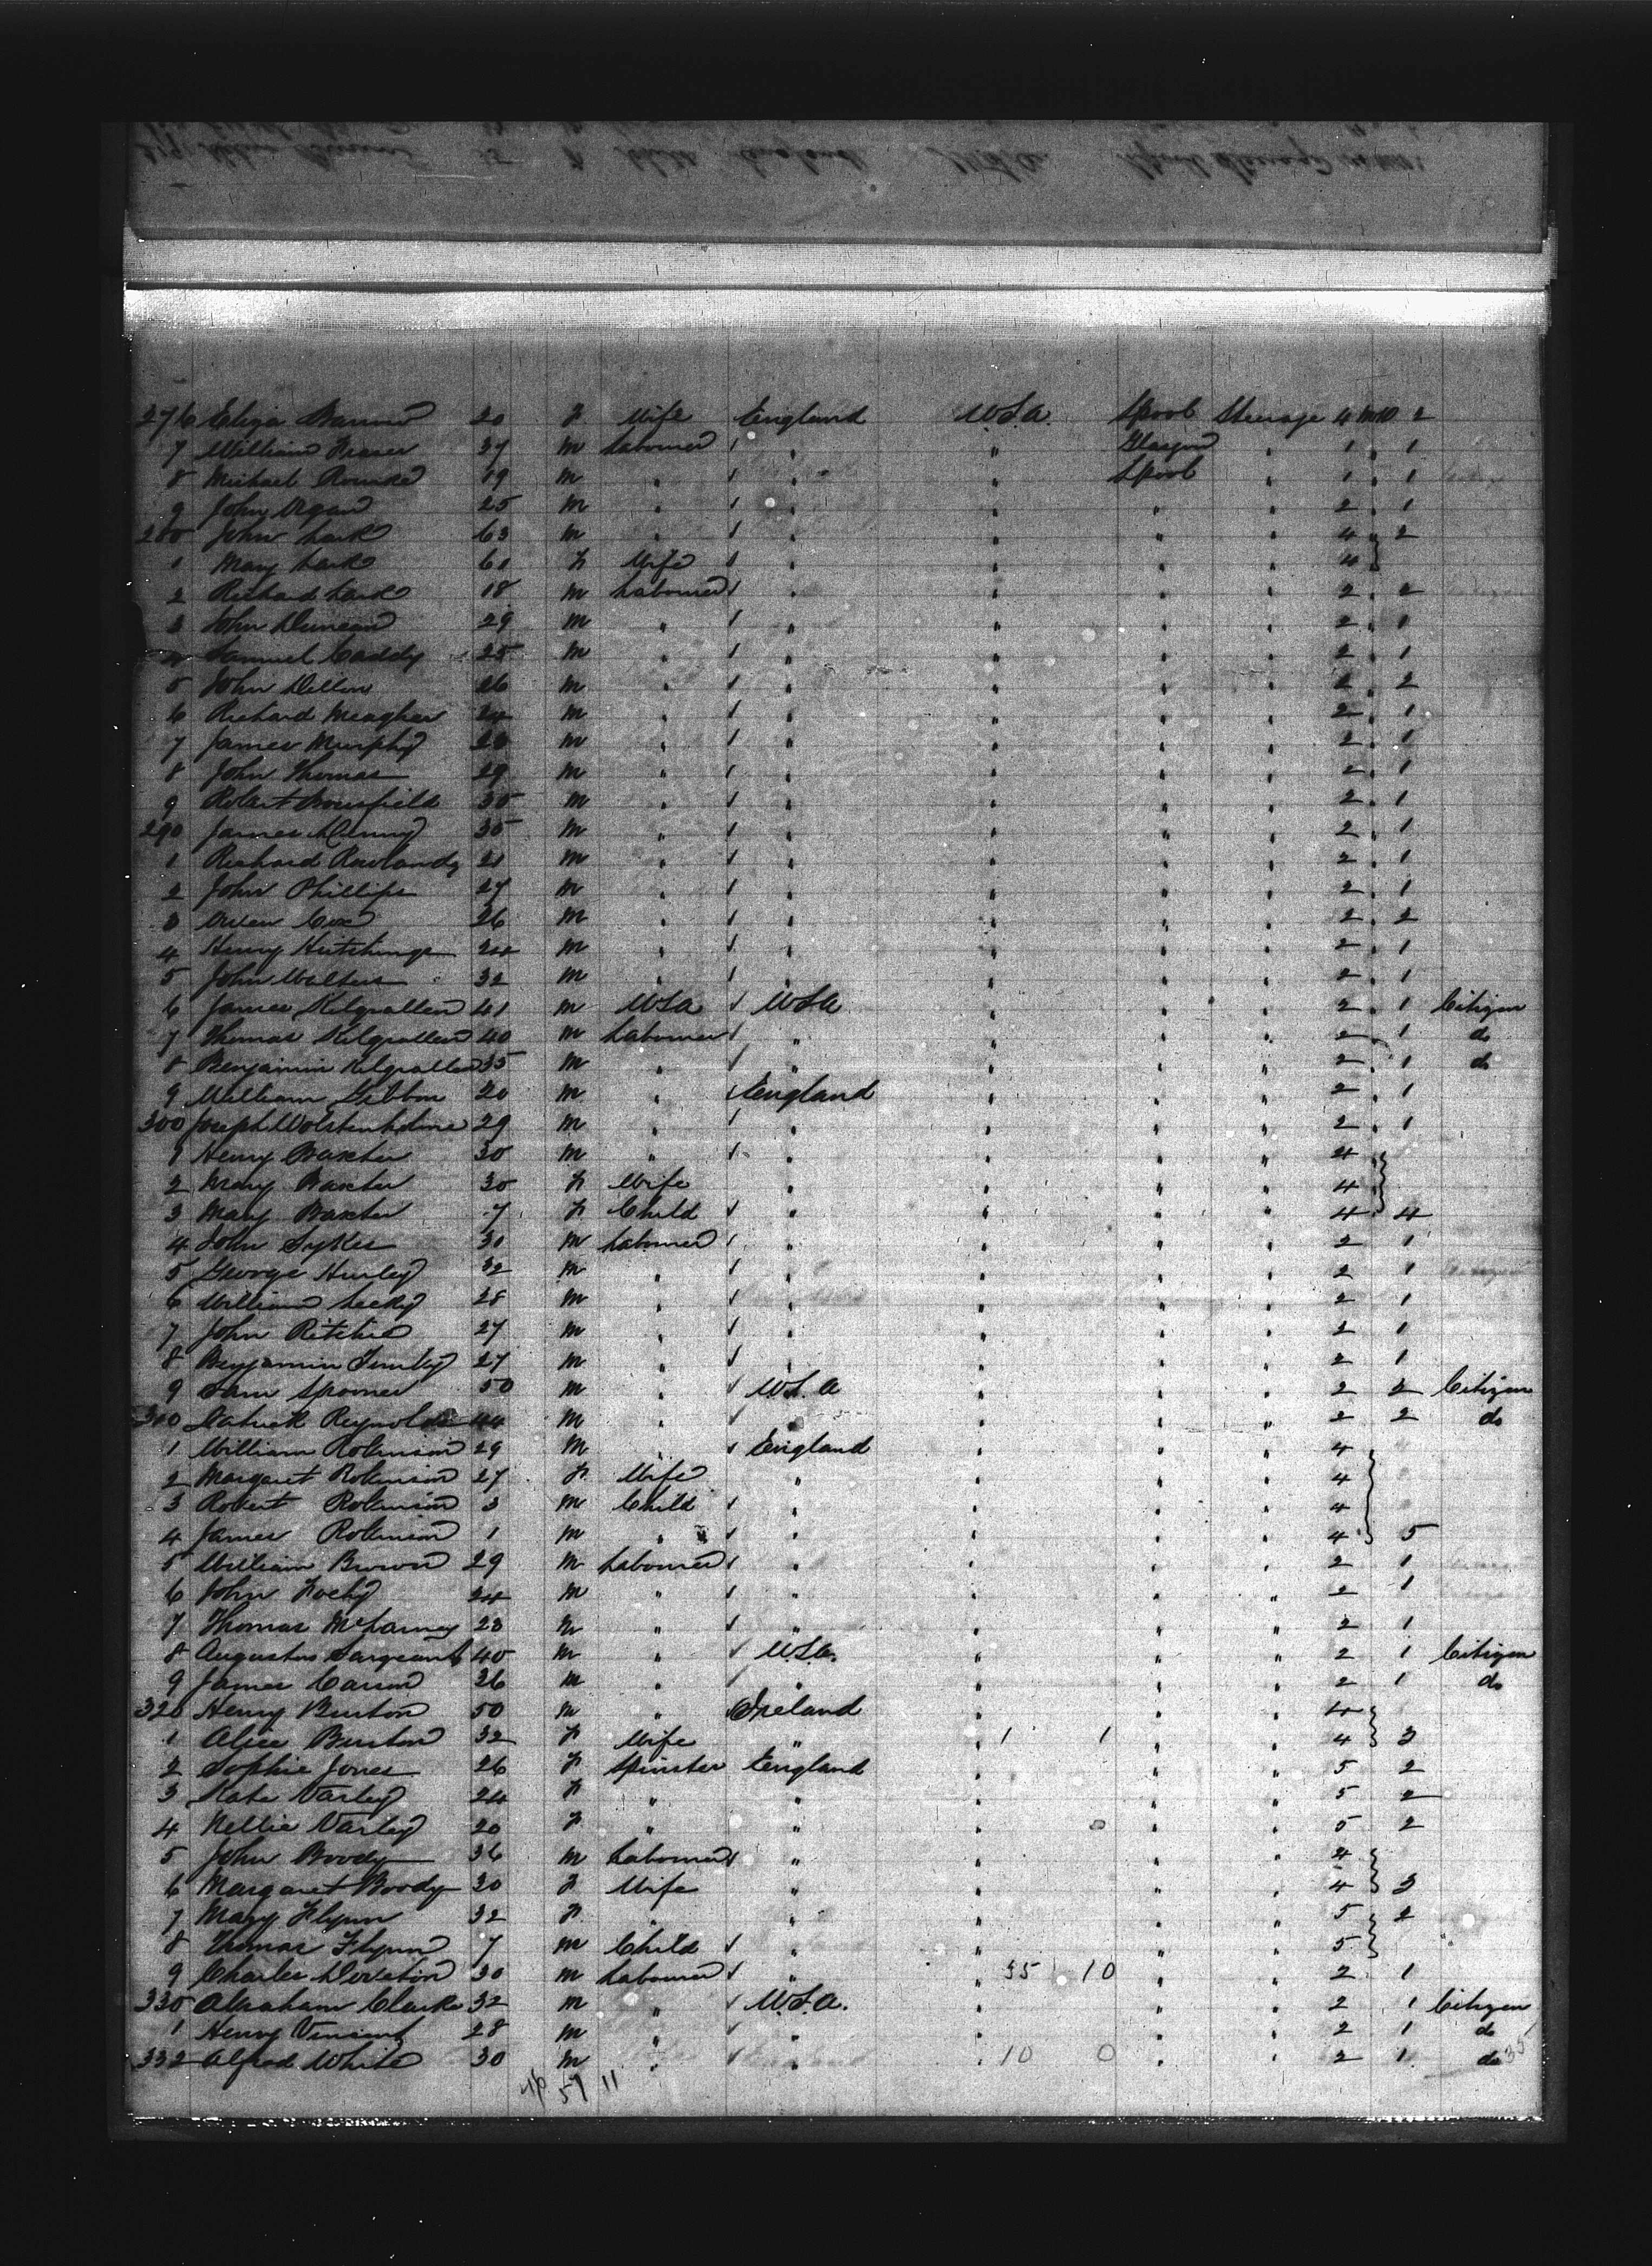 276 Eliza 20 F Wife England U.S.A. Lpool Steerage 4 2
7 William Fraser 37 M Labourer " " Glasgow " 1 " 1
8 Michael Rourke 19 M " " " Lpool " 1 " 1
9 John Organ 25 M " " " " " 2 " 1
280 John Lark 63 M " " " " " 4 " 2
1 Mary Lark 61 F Wife " " " " 4
2 Richard Lark 18 M Labourer " " " " 2 " 2
3 John Duncan 29 M " " " " " 2 " 1
4 Samuel Caddy 25 M " " " " " 2 " 1
5 John Dillon 26 M " " " " " 2 " 2
6 Richard Meagher 24 M " " " " " 2 " 1
7 James Murphy M " " " " " 2 " 1
8 John Thomas 29 M " " " " " 2 " 1
9 Robert Bousfield 35 M " " " " " 2 " 1
290 James Denny 35 M " " " " " 2 " 1
1 Richard Rowlands 21 M " " " " " 2 " 1
2 John Phillips 27 M " " " " " 2 " 1
3 Owen Cox 26 M " " " " " 2 " 2
4 Henry Hutchings 24 M " " " " " 2 " 1
5 John Walters 32 M " " " " " 2 " 1
6 James Kilgrallen 41 M USA USA " " " 2 " 1 Citizen
7 Thomas Kilgrallen 40 M Labourer " " " " 2 " 1 do
8 Benjamin Kilgrallen 35 M " " " " " 2 " 1 do
9 William Gibbon 20 M " England " " " 2 " 1
300 Joseph Wolstenholme 29 M " " " " " 2 " 1
1 Henry Baxter 30 M " " " " " 4
2 Mary Baxter 30 F Wife " " " " 4
3 Mary Baxter 7 F Child " " " " 4 4
4 John Sykes 30 M Labourer " " " " 2 1
5 George Hurley 32 M " " " " " 2 1
6 William Lecky 28 M " " " " " 2 1
7 John Ritchie 27 M " " " " " 2 1
8 Benjamin 27 M " " " " " 2 1
9 Sam Spooner 50 M " U.S.A " " " 2 2 Citizen
310 Patrick Reynolds 44 M " " " " " 2 2 do
1 William Robinson 29 M " England " " " 4
2 Margaret Robinson 27 F Wife " " " " 4
3 Robert Robinson 3 M Child " " " " 4
4 James Robinson 1 M " " " " " 4 5
5 William Brown 29 M Labourer " " " " 2 1
6 John 24 M " " " " " 2 1
7 Thomas 23 M " " " " " 2 1
8 Augustus Sargeant 40 M " U.S.A. " " " 2 1 Citizen
9 James Carson 36 M " " " " " 2 1 do
320 Henry Burton 50 M " Ireland " " " 4
1 Alice Burton 32 F Wife " 1 1 " " 4 3
2 Sophie Jones 26 F Spinster England " " " 5 2
3 Kate Varley 24 F " " " " " 5 2
4 Nellie Varley 20 F " " " 0 " " 5 2
5 John Boody 36 M Labourer " " " " 4
6 Margaret Boody 30 F Wife " " " " 4 3
7 Mary Flynn 32 F " " " " " 5 2
8 Thomas Flynn 7 M Child " " " " 5
9 Charles 30 M Labourer " " 35 10 " " 2 1
330 Abraham Clarke 32 M " U.S.A. " " " 2 1 Citizen
1 Henry Vincent 28 M " " " " " 2 1 do
332 Alfred White 30 M " " 10 0 " " 2 1 do 35
51 11